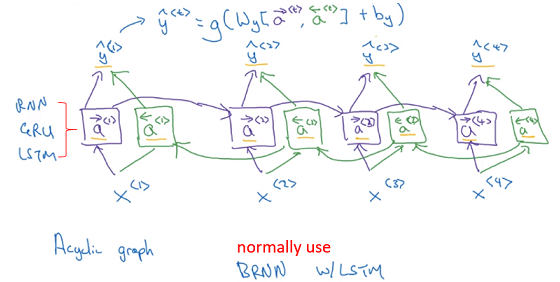 ŷ<t> = g(Wy[a→<t>, a←<t>] + by)
ŷ<1> ŷ<2> ŷ<3> ŷ<4>
RNN
GRU
LSTM
a→<1> a←<1> a→<2> a←<2> a→<3> a←<3> a→<4> a←<4>
x<1> x<2> x<3> x<4>
Acyclic graph
normally use
BRNN w/LSTM